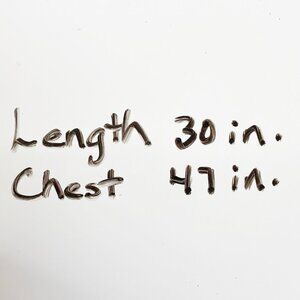 Length 30 in.
Chest 47 in.